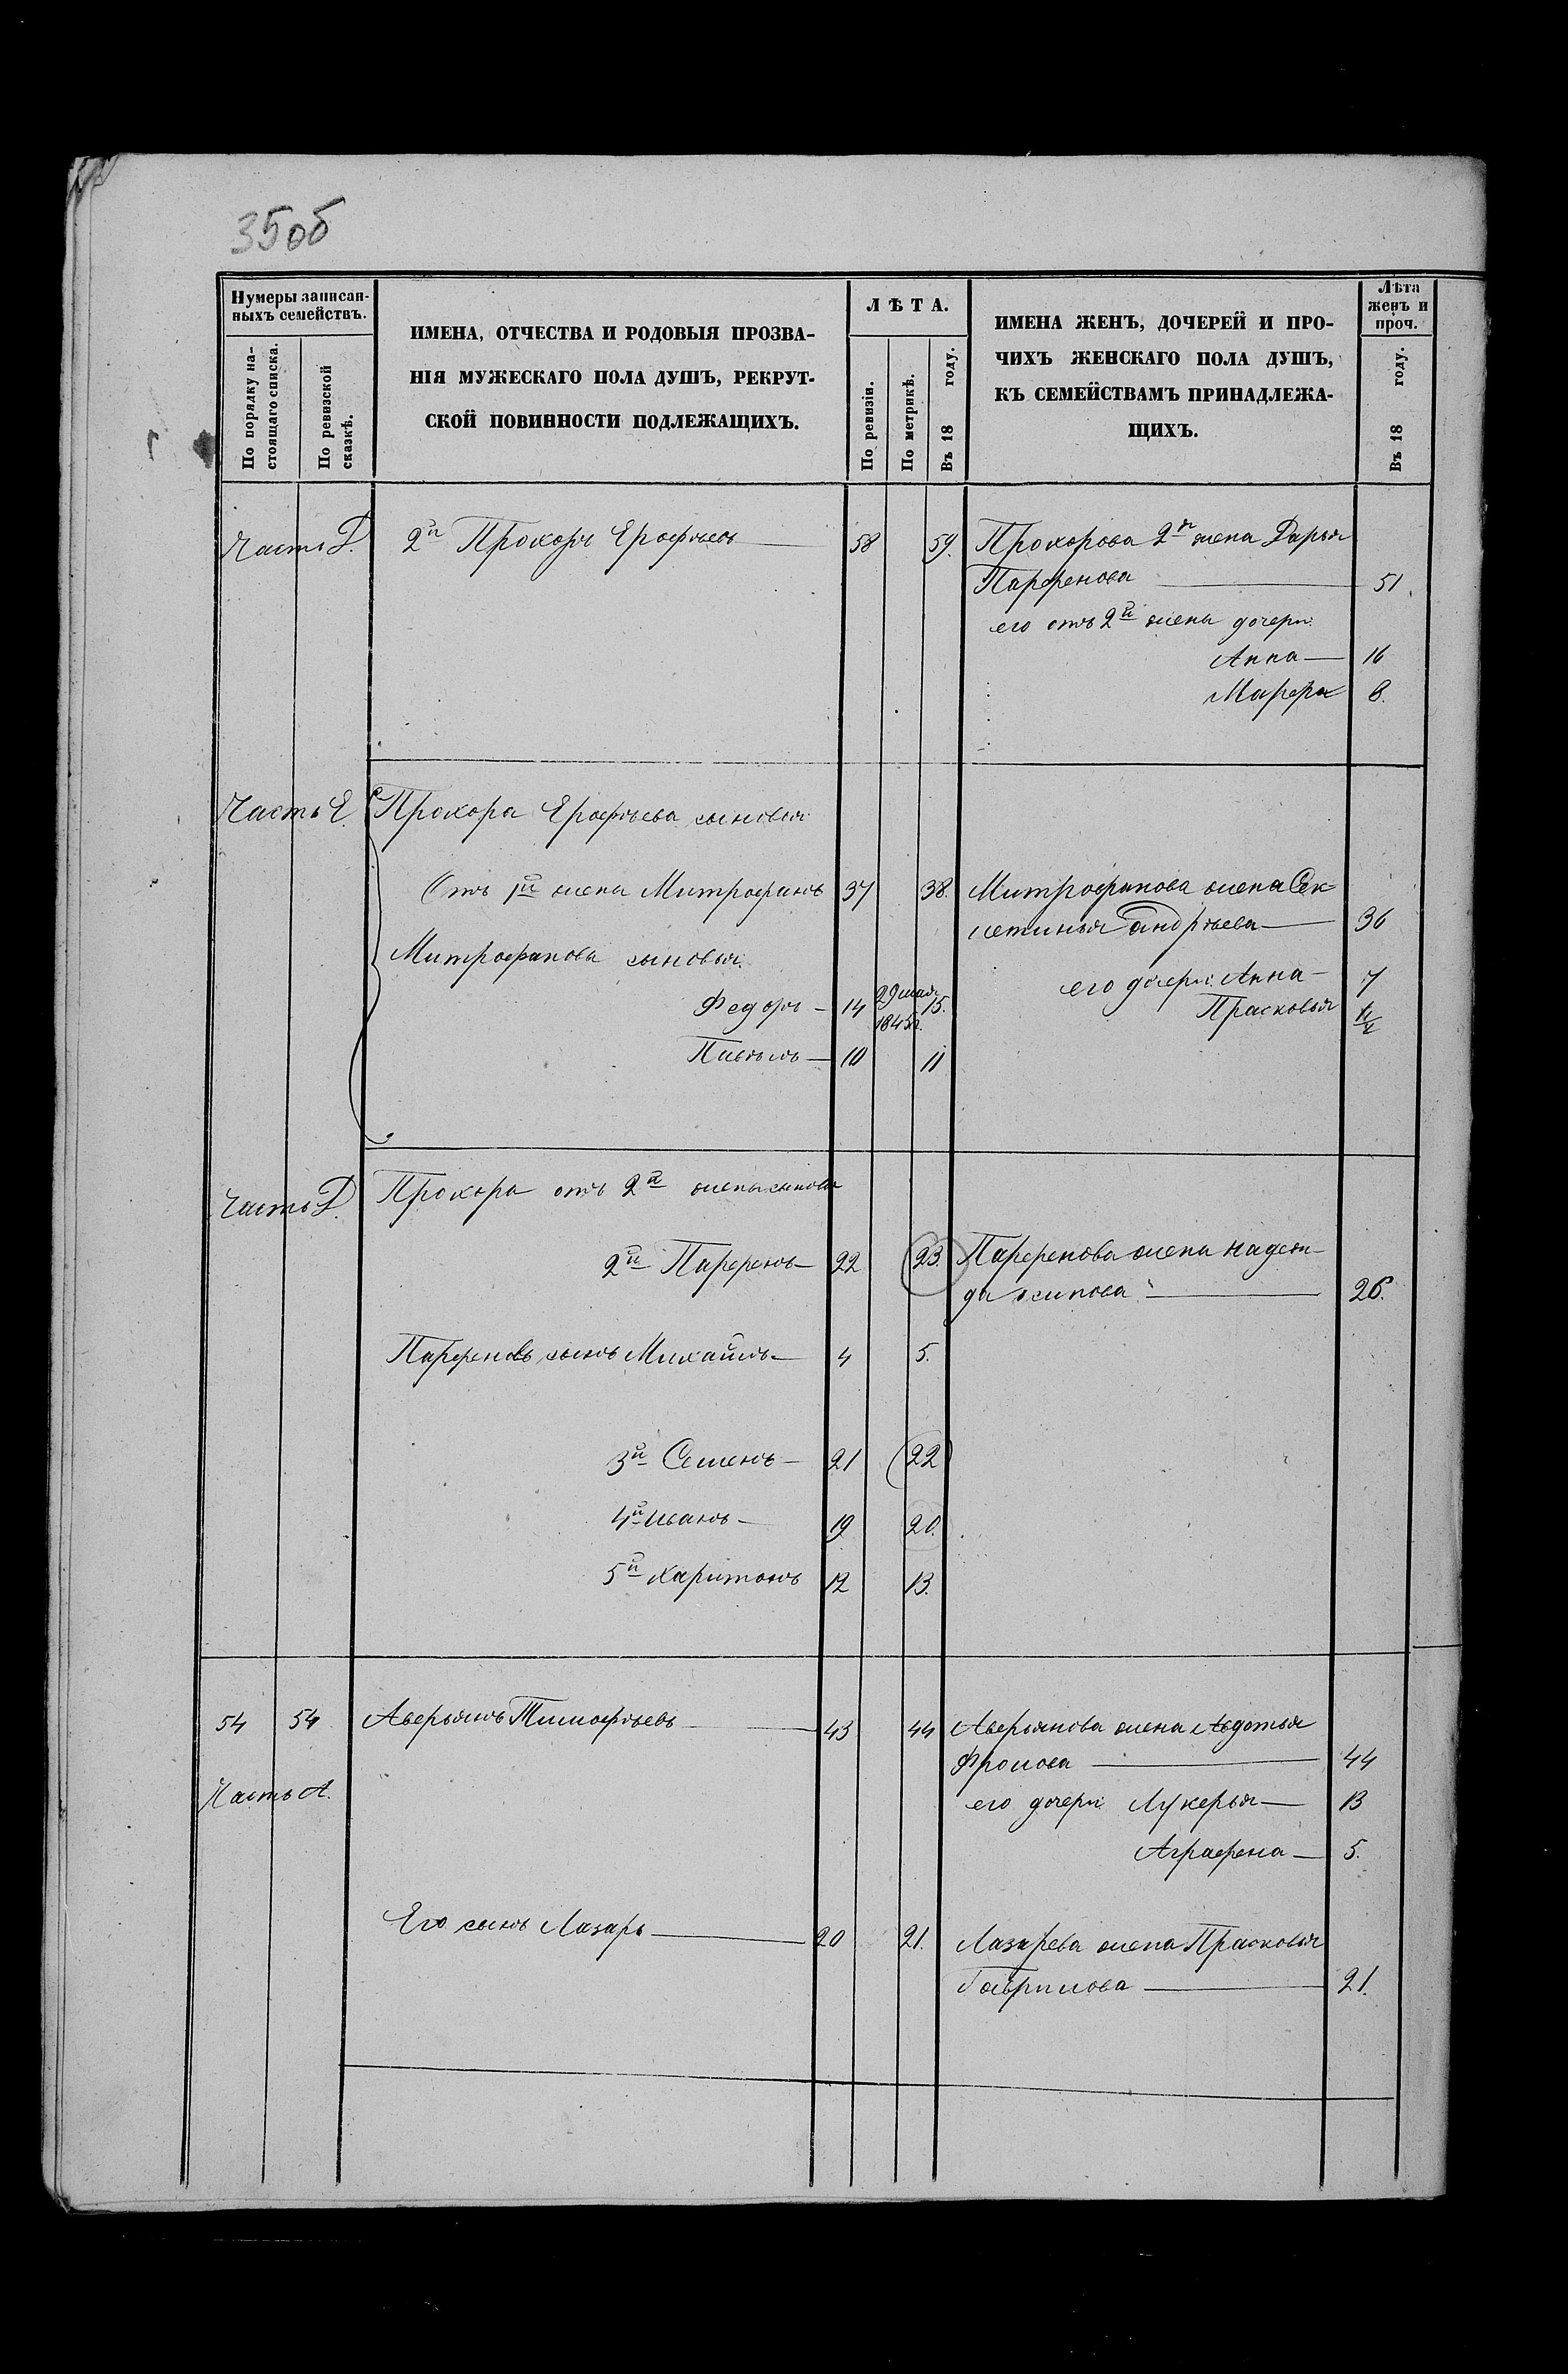 35об
Нумеры записан-
ныхъ семействъ.
По порядку на-
стоящаго списка.
По ревизской
сказкѣ.
ИМЕНА, ОТЧЕСТВА И РОДОВЫЯ ПРОЗВА-
НІЯ МУЖЕСКАГО ПОЛА ДУШЪ, РЕКРУТ-
СКОЙ ПОВИННОСТИ ПОДЛЕЖАЩИХЪ.
ЛѢТА.
По ревизіи.
По метрикѣ.
Въ 18 году.
ИМЕНА ЖЕНЪ, ДОЧЕРЕЙ И ПРО-
ЧИХЪ ЖЕНСКАГО ПОЛА ДУШЪ,
КЪ СЕМЕЙСТВАМЪ ПРИНАДЛЕЖА-
ЩИХЪ.
Лѣта
женъ и
проч.
Въ 18 году.
Часть Д. 2й Прохоръ Ерофѣевъ 58 59. Прохорова 2я жена Дарья
Парфенова 51.
его отъ 2й жены дочери:
Анна 16
Марфа 8.
Часть Е. Прохора Ерофѣева сыновья
Отъ 1й жены Митрофанъ 37 38. Митрофанова жена Сек
летинья Андрѣева 36
Митрофанова сыновья:
его дочери: Анна 7
Федоръ 14 29 мая 1845г. 15. Прасковья
Павелъ 10 11
Часть Д. Прохора отъ 2й жены сыновья
2й Парфенъ 22 23. Парфенова жена Надеж-
да Осипова 26.
Парфеновъ сынъ Михайлъ 4 5.
3й Семенъ 21 22
4й Иванъ 19 20.
5й Харитонъ 12 13.
54 54 Аверьянъ Тимофѣевъ 43 44 Аверьянова жена Авдотья
Фролова 44
Часть А. его дочери: Лукерья 13
Аграфена 5.
Его сынъ Лазарь 20 21. Лазарева жена Прасковья
Гаврилова 21.